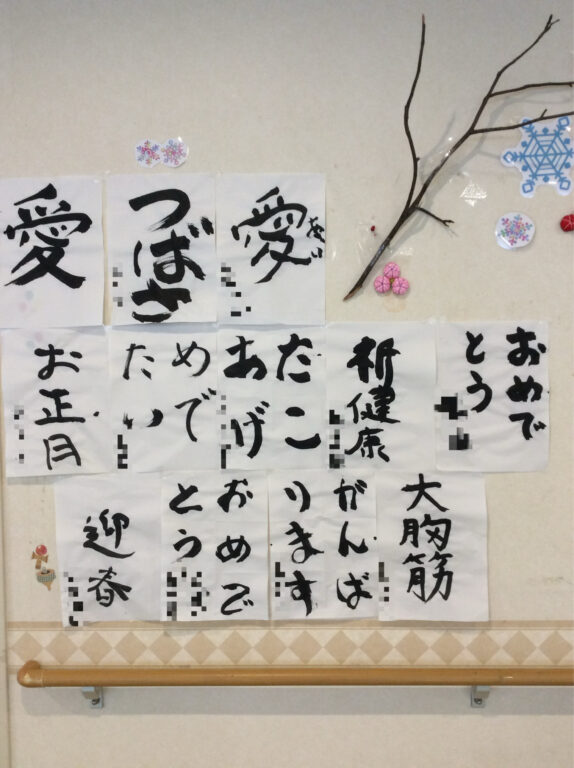 愛
つばさ
愛
あい
お正月
めで
たい
たこ
あげ
祈健康
おめで
とう
迎春
おめで
とう
がんば
ります
大胸筋